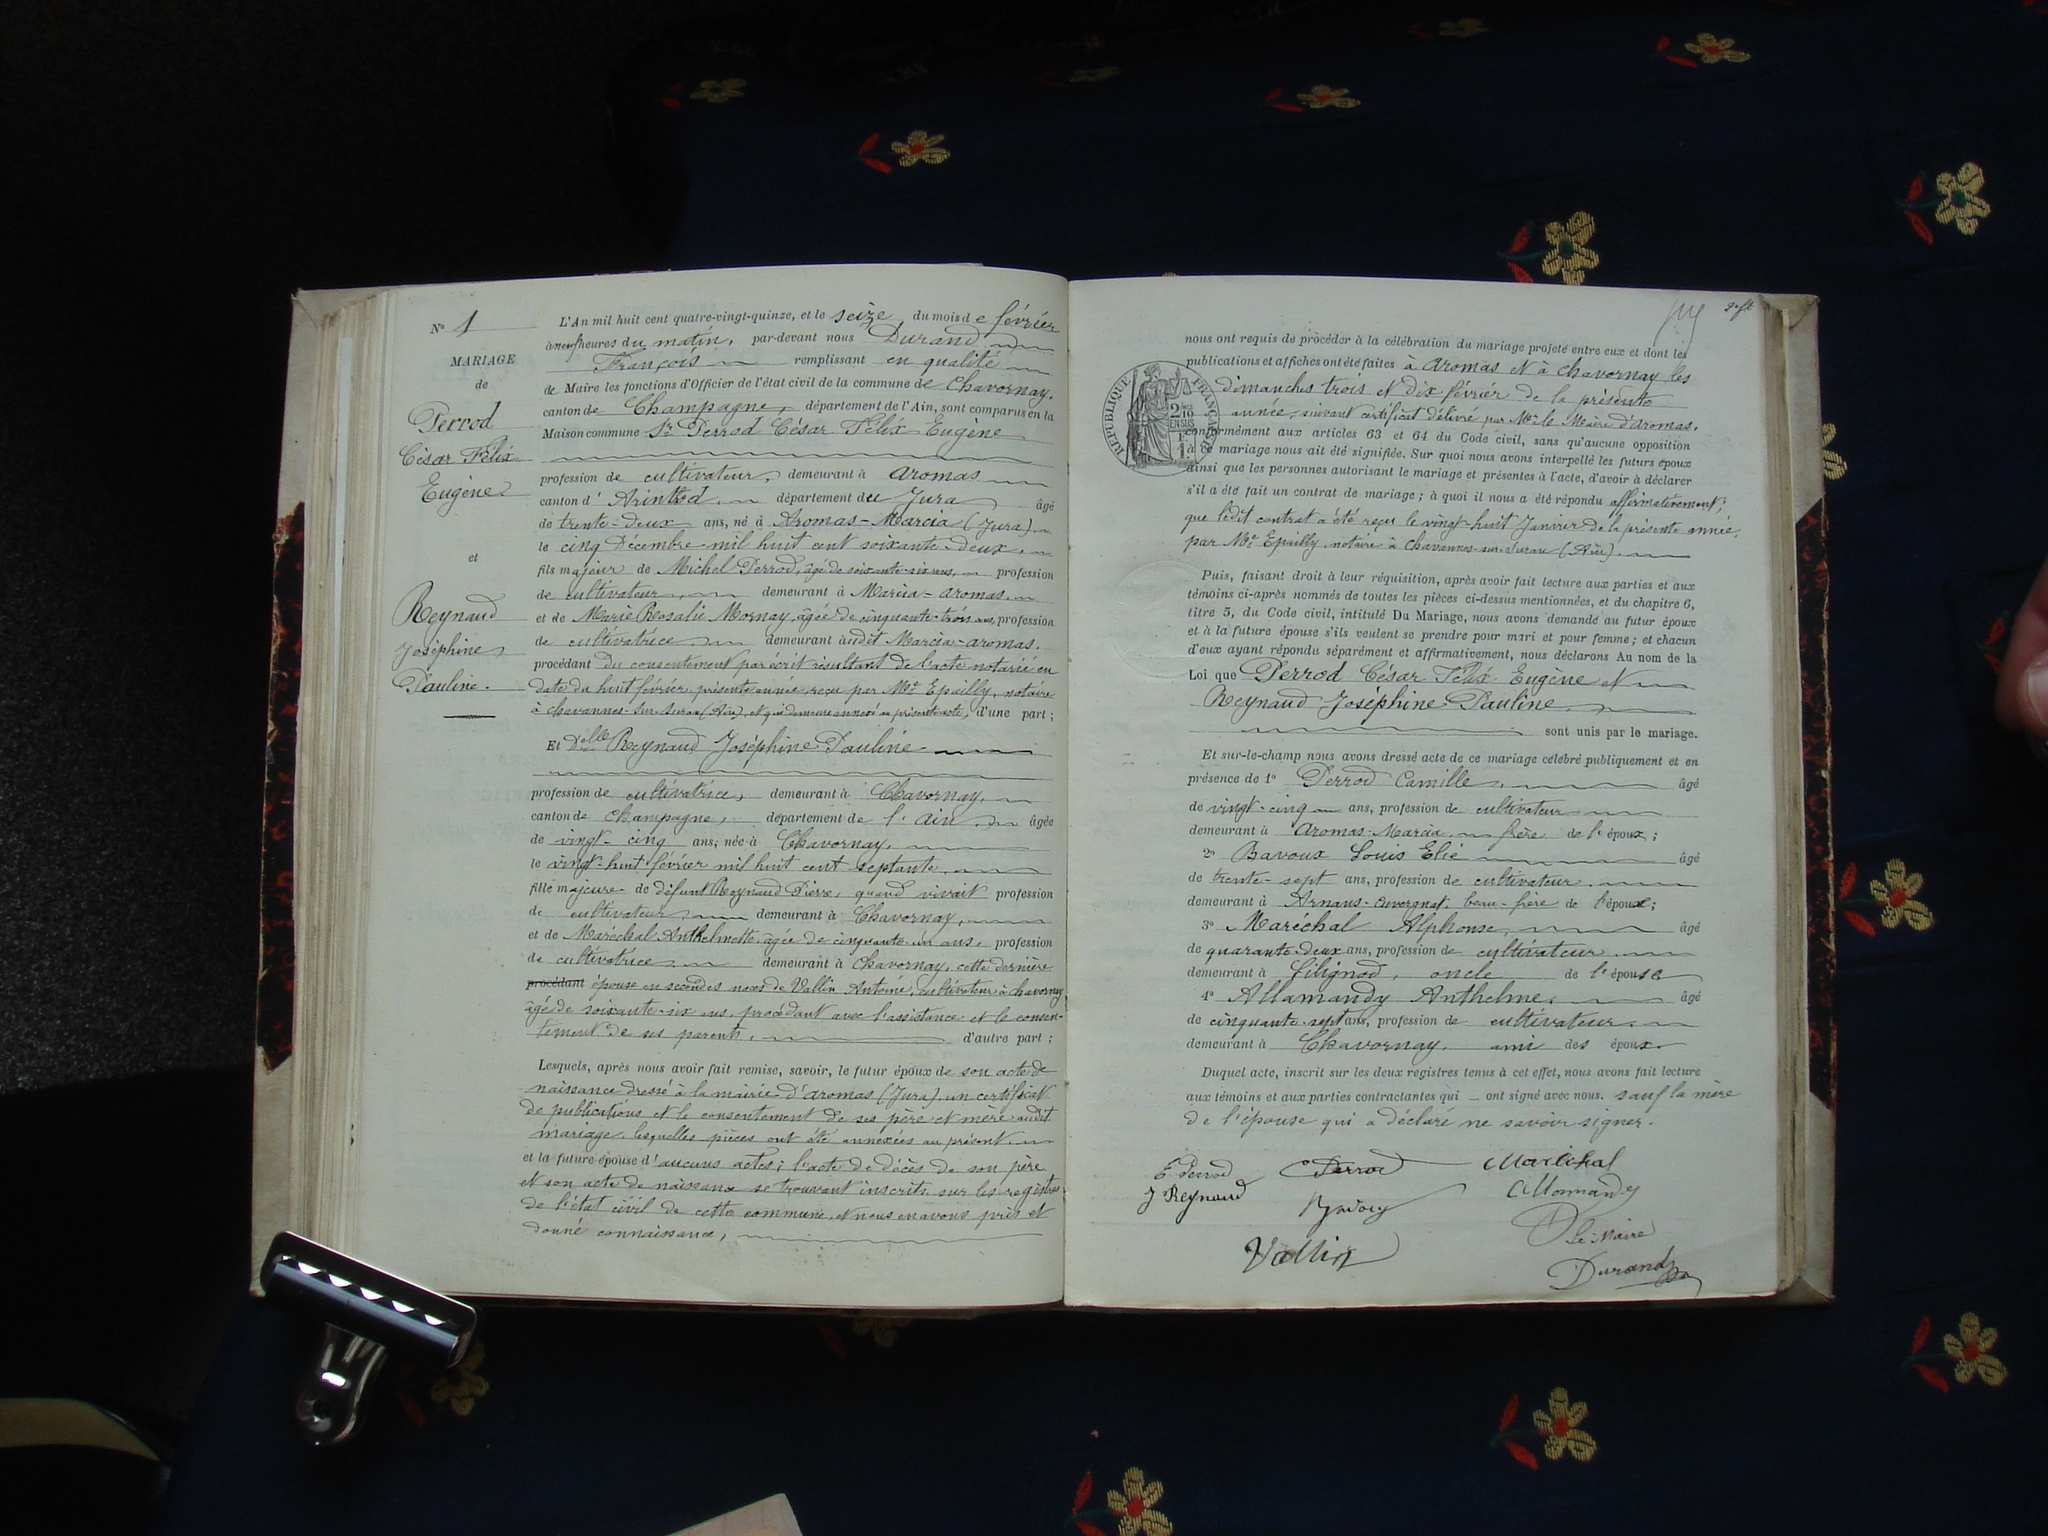 N° 1
MARIAGE
de
Perrod
César Félix
Eugène
et
Reynaud
Joséphine
Pauline.
L'An mil huit cent quatre-vingt-quinze, et le seize du mois de février
à neuf heures du matin, par-devant nous Durand
François remplissant en qualité
de Maire les fonctions d'Officier de l'état civil de la commune de Chavornay,
canton de Champagne, département de l'Ain, sont comparus en la
Maison commune Sr Perrod César Félix Eugène
profession de cultivateur, demeurant à Aromas
canton d'Arinthod, département du Jura âgé
de trente-deux ans, né à Aromas-Marcia (Jura)
le cinq Décembre mil huit cent soixante-deux,
fils majeur de Michel Perrod, âgé de soixante-six ans, profession
de cultivateur, demeurant à Marcia-Aromas,
et de Marie Rosalie Mornay, âgée de cinquante-trois ans, profession
de cultivatrice demeurant audit Marcia-Aromas.
procédant du consentement par écrit résultant de l'acte notarié en
date du huit février présente année reçu par Me Epailly, notaire
à Chavannes-sur-Suran (Ain), et qui demeure annexé au présent acte, d'une part ;
Et Delle Reynaud Joséphine Pauline
profession de cultivatrice, demeurant à Chavornay,
canton de Champagne, département de l'Ain âgée
de vingt-cinq ans, née à Chavornay,
le vingt-huit février mil huit cent septante
fille majeure de défunt Reynaud Pierre, quand vivait profession
de cultivateur, demeurant à Chavornay,
et de Maréchal Anthelmette, âgée de cinquante-un ans, profession
de cultivatrice demeurant à Chavornay, cette dernière
procédant épouse en secondes noces de Vallin Antoine, cultivateur à Chavornay
âgé de soixante-six ans, procédant avec l'assistance et le consen-
tement de ses parents, d'autre part ;
Lesquels, après nous avoir fait remise, savoir, le futur époux de son acte de
naissance dressé à la mairie d'Aromas (Jura), un certificat
de publications et le consentement de ses père et mère audit
mariage, lesquelles pièces ont été annexées au présent
et la future épouse d'aucuns actes ; l'acte de décès de son père
et son acte de naissance se trouvant inscrits sur les registres
de l'état civil de cette commune, et nous en avons pris et
donné connaissance,
nous ont requis de procéder à la célébration du mariage projeté entre eux et dont les
publications et affiches ont été faites à Aromas et à Chavornay les
dimanches trois et dix février de la présente
année, suivant certificat délivré par Mr le Maire d'Aromas.
conformément aux articles 63 et 64 du Code civil, sans qu'aucune opposition
à ce mariage nous ait été signifiée. Sur quoi nous avons interpellé les futurs époux
ainsi que les personnes autorisant le mariage et présentes à l'acte, d'avoir à déclarer
s'il a été fait un contrat de mariage ; à quoi il nous a été répondu affirmativement,
que ledit contrat a été reçu le vingt-huit Janvier de la présente année,
par Me Epailly notaire à Chavannes-sur-Suran (Ain).
RÉPUBLIQUE FRANÇAISE
Puis, faisant droit à leur réquisition, après avoir fait lecture aux parties et aux
témoins ci-après nommés de toutes les pièces ci-dessus mentionnées, et du chapitre 6,
titre 5, du Code civil, intitulé Du Mariage, nous avons demandé au futur époux
et à la future épouse s'ils veulent se prendre pour mari et pour femme ; et chacun
d'eux ayant répondu séparément et affirmativement, nous déclarons Au nom de la
Loi que Perrod César Félix Eugène et
Reynaud Joséphine Pauline
sont unis par le mariage.
Et sur-le-champ nous avons dressé acte de ce mariage célébré publiquement et en
présence de 1° Perrod Camille, âgé
de vingt-cinq ans, profession de cultivateur
demeurant à Aromas-Marcia frère de l'époux ;
2° Bavoux Louis Elie âgé
de trente-sept ans, profession de cultivateur
demeurant à Arnans-Auvergnat, beau-frère de l'époux ;
3° Maréchal Alphonse, âgé
de quarante-deux ans, profession de cultivateur
demeurant à Filignod, oncle de l'épouse
4° Allamandy Anthelme, âgé
de cinquante-sept ans, profession de cultivateur
demeurant à Chavornay, ami des époux
Duquel acte, inscrit sur les deux registres tenus à cet effet, nous avons fait lecture
aux témoins et aux parties contractantes qui ont signé avec nous, sauf la mère
de l'épouse qui a déclaré ne savoir signer.
E Perrod C Perrod Maréchal
J Reynaud Bavoux Allamandy
Vallin Le Maire
Durand